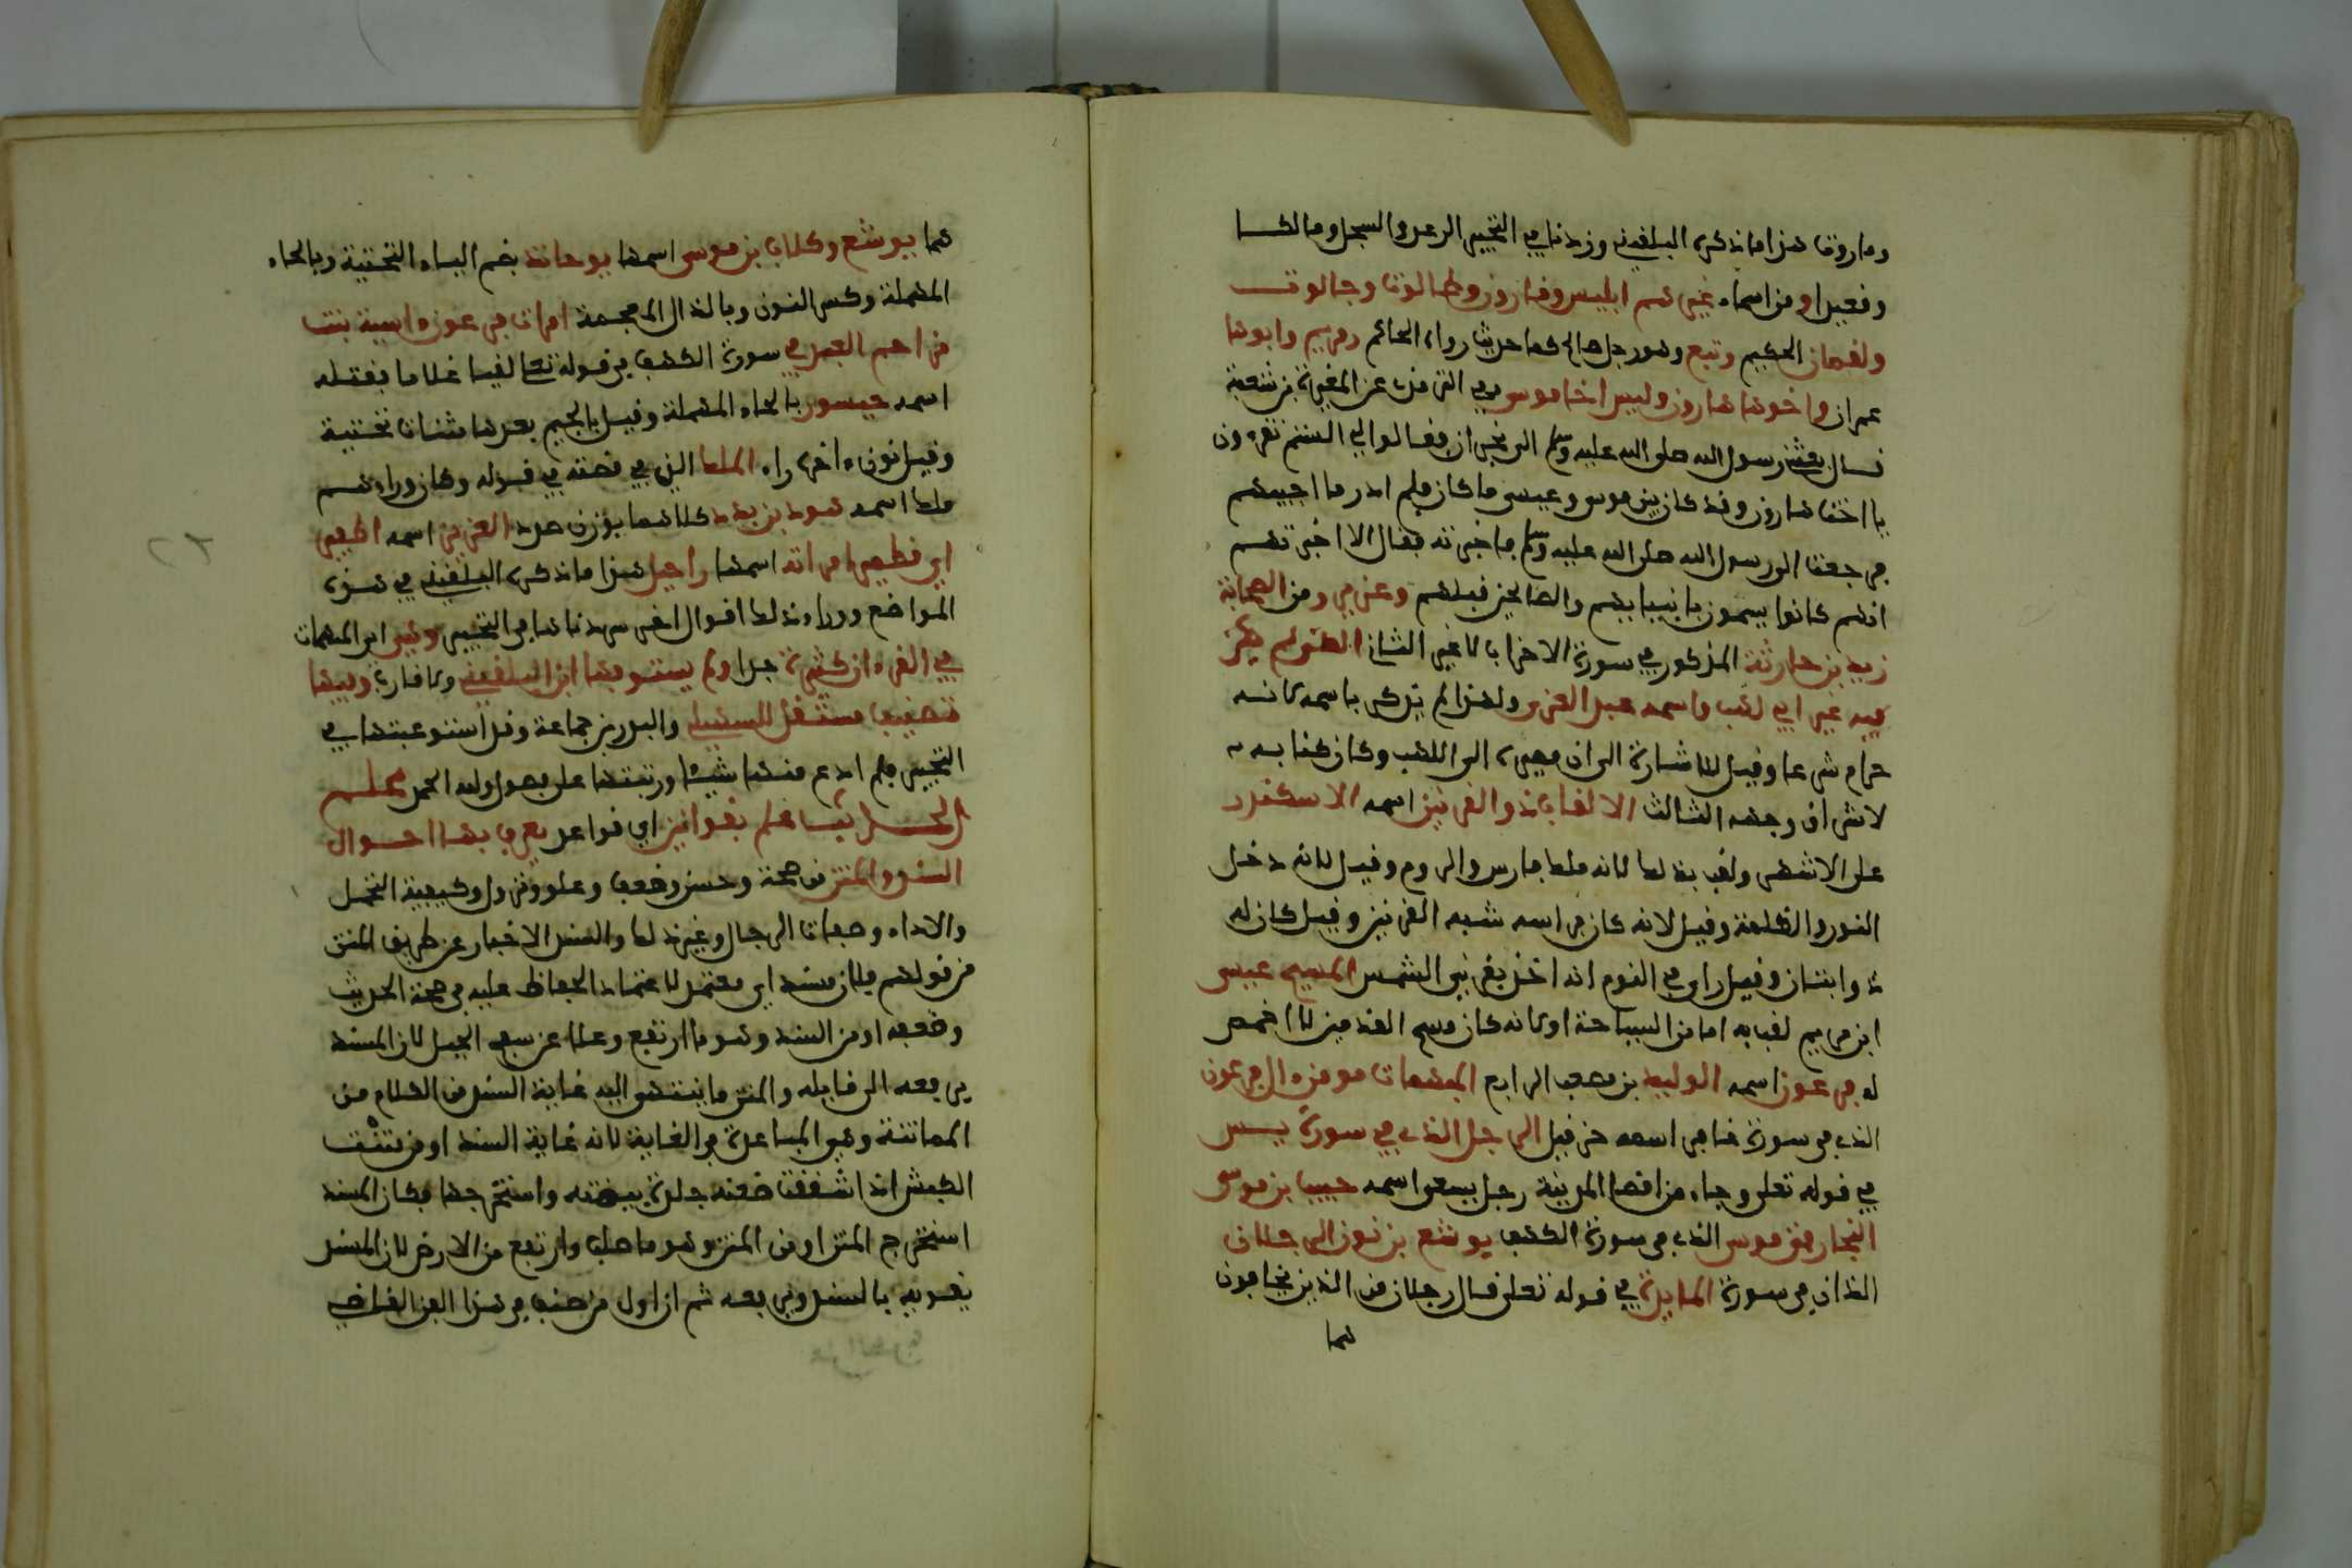 وماروت هذا ما ذكره البلقيني وزدنا في التحبير الرعد والسجل ومالكا
وقعيدا ومن اسماء غيرهم ابليس وقارون وطالوت وجالوت
ولقمان الحكيم وتبع وهو رجل صالح كما حديث رواه الحاكم ومريم وابوها
عمران واخوها هارون وليس اخا موسى في الترمذي عن المغيرة بن شعبة
قال بعثني رسول الله صلى الله عليه وسلم الى نجران فقالوا لي الستم تقرءون
يا اخت هارون وقد كان بين موسى وعيسى ما كان فلم ادر ما اجيبهم
فرجعت الى رسول الله صلى الله عليه وسلم فاخبرته فقال الا اخبرتهم
انهم كانوا يسمون بانبيايهم والصالحين قبلهم وعزير ومن الصحابة
زيد بن حارثة المذكور في سورة الاحزاب لا غير الثاني الكنى لم يكن
فيه غير ابي لهب واسمه عبد العزى ولهذا لم يذكر باسمه لانه
حرام شرعا وقيل للاشارة الى ان مصيره الى اللهب وكان كنا به
لاشراق وجهه الثالث الالقاب ذو القرنين اسمه الاسكندر
على الاشهر ولقب بذلك لانه ملك فارس والروم وقيل لانه دخل
النور والظلمة وقيل لانه كان براسه شبه القرنين وقيل كان له
ذؤابتان وقيل راى في النوم انه اخذ بقرني الشمس المسيح عيسى
ابن مريم لقب به اما من السياحة او لانه كان مسيح القدمين لا اخمص
له فرعون اسمه الوليد بن مصعب الرابع المبهمات مومن ءال فرعون
الذي في سورة غافر اسمه حزقيل الرجل الذي في سورة يس
في قوله تعلى وجاء من اقصا المدينة رجل يسعى اسمه حبيب بن موسى
النجار فتى موسى الذي في سورة الكهف يوشع بن نون الرجلان
الذان في سورة المايدة في قوله تعلى قال رجلان من الذين يخافون
هما
هما يوشع وكلاب بن موسى اسمها يوحاند بضم الياء التحتية وبالحاء
المهملة وكسر النون وبالذال المعجمة امرات فرعون ءاسية بنت
مزاحم العبد في سورة الكهف في قوله تعلى لقيا غلاما فقتله
اسمه حيسور بالحاء المهملة وقيل بالجيم بعدها مثنات تحتية
وقيل نون ءاخره راء الملك الذي في قصته في قوله وكان وراءهم
ملك اسمه هدد بن بدد كلاهما بوزن صرد العزيز اسمه اطفير
او قطفير امراته اسمها راعيل هذا ما ذكره البلقيني في هذه
المواضع ووراء ذلك اقوال اخر سردناها في التحبير وهي اي المبهمات
في القرءان كثيرة جدا ولم يستوفها اي البلقيني ولا قارب وفيها
تصنيف مستقل للسهيلي والبدر بن جماعة وقد استوعبتها في
التحبير فلم ادع منها شيئا ورتبتها على فصول ولله الحمد علم
الحديث علم بقوانين اي قواعد يعرف بها احوال
السند والمتن من صحة وحسن وضعف وعلو ونزول وكيفية التحمل
والاداء وصفات الرجال وغير ذلك والسند الاخبار عن طريق المتن
من قولهم فلان سند اي معتمد لاعتماد الحفاظ عليه في صحة الحديث
وضعفه او من السند وهو ما ارتفع وعلا عن سفح الجبل لان المسند
يرفعه الى قايله والمتن ما ينتهى اليه غاية السند من الكلام من
المماتنة وهي المباعدة في الغاية لانه غاية السند او من متنت
الكبش اذا شققت صفنة جلدة بيضته واستخرجتها فكان المسند
استخرج المتن او من المتن وهو ما صلب وارتفع من الارض لان المسند
يقويه بالسند ويرفعه ثم ان اول من صنف في هذا الفن القاضي